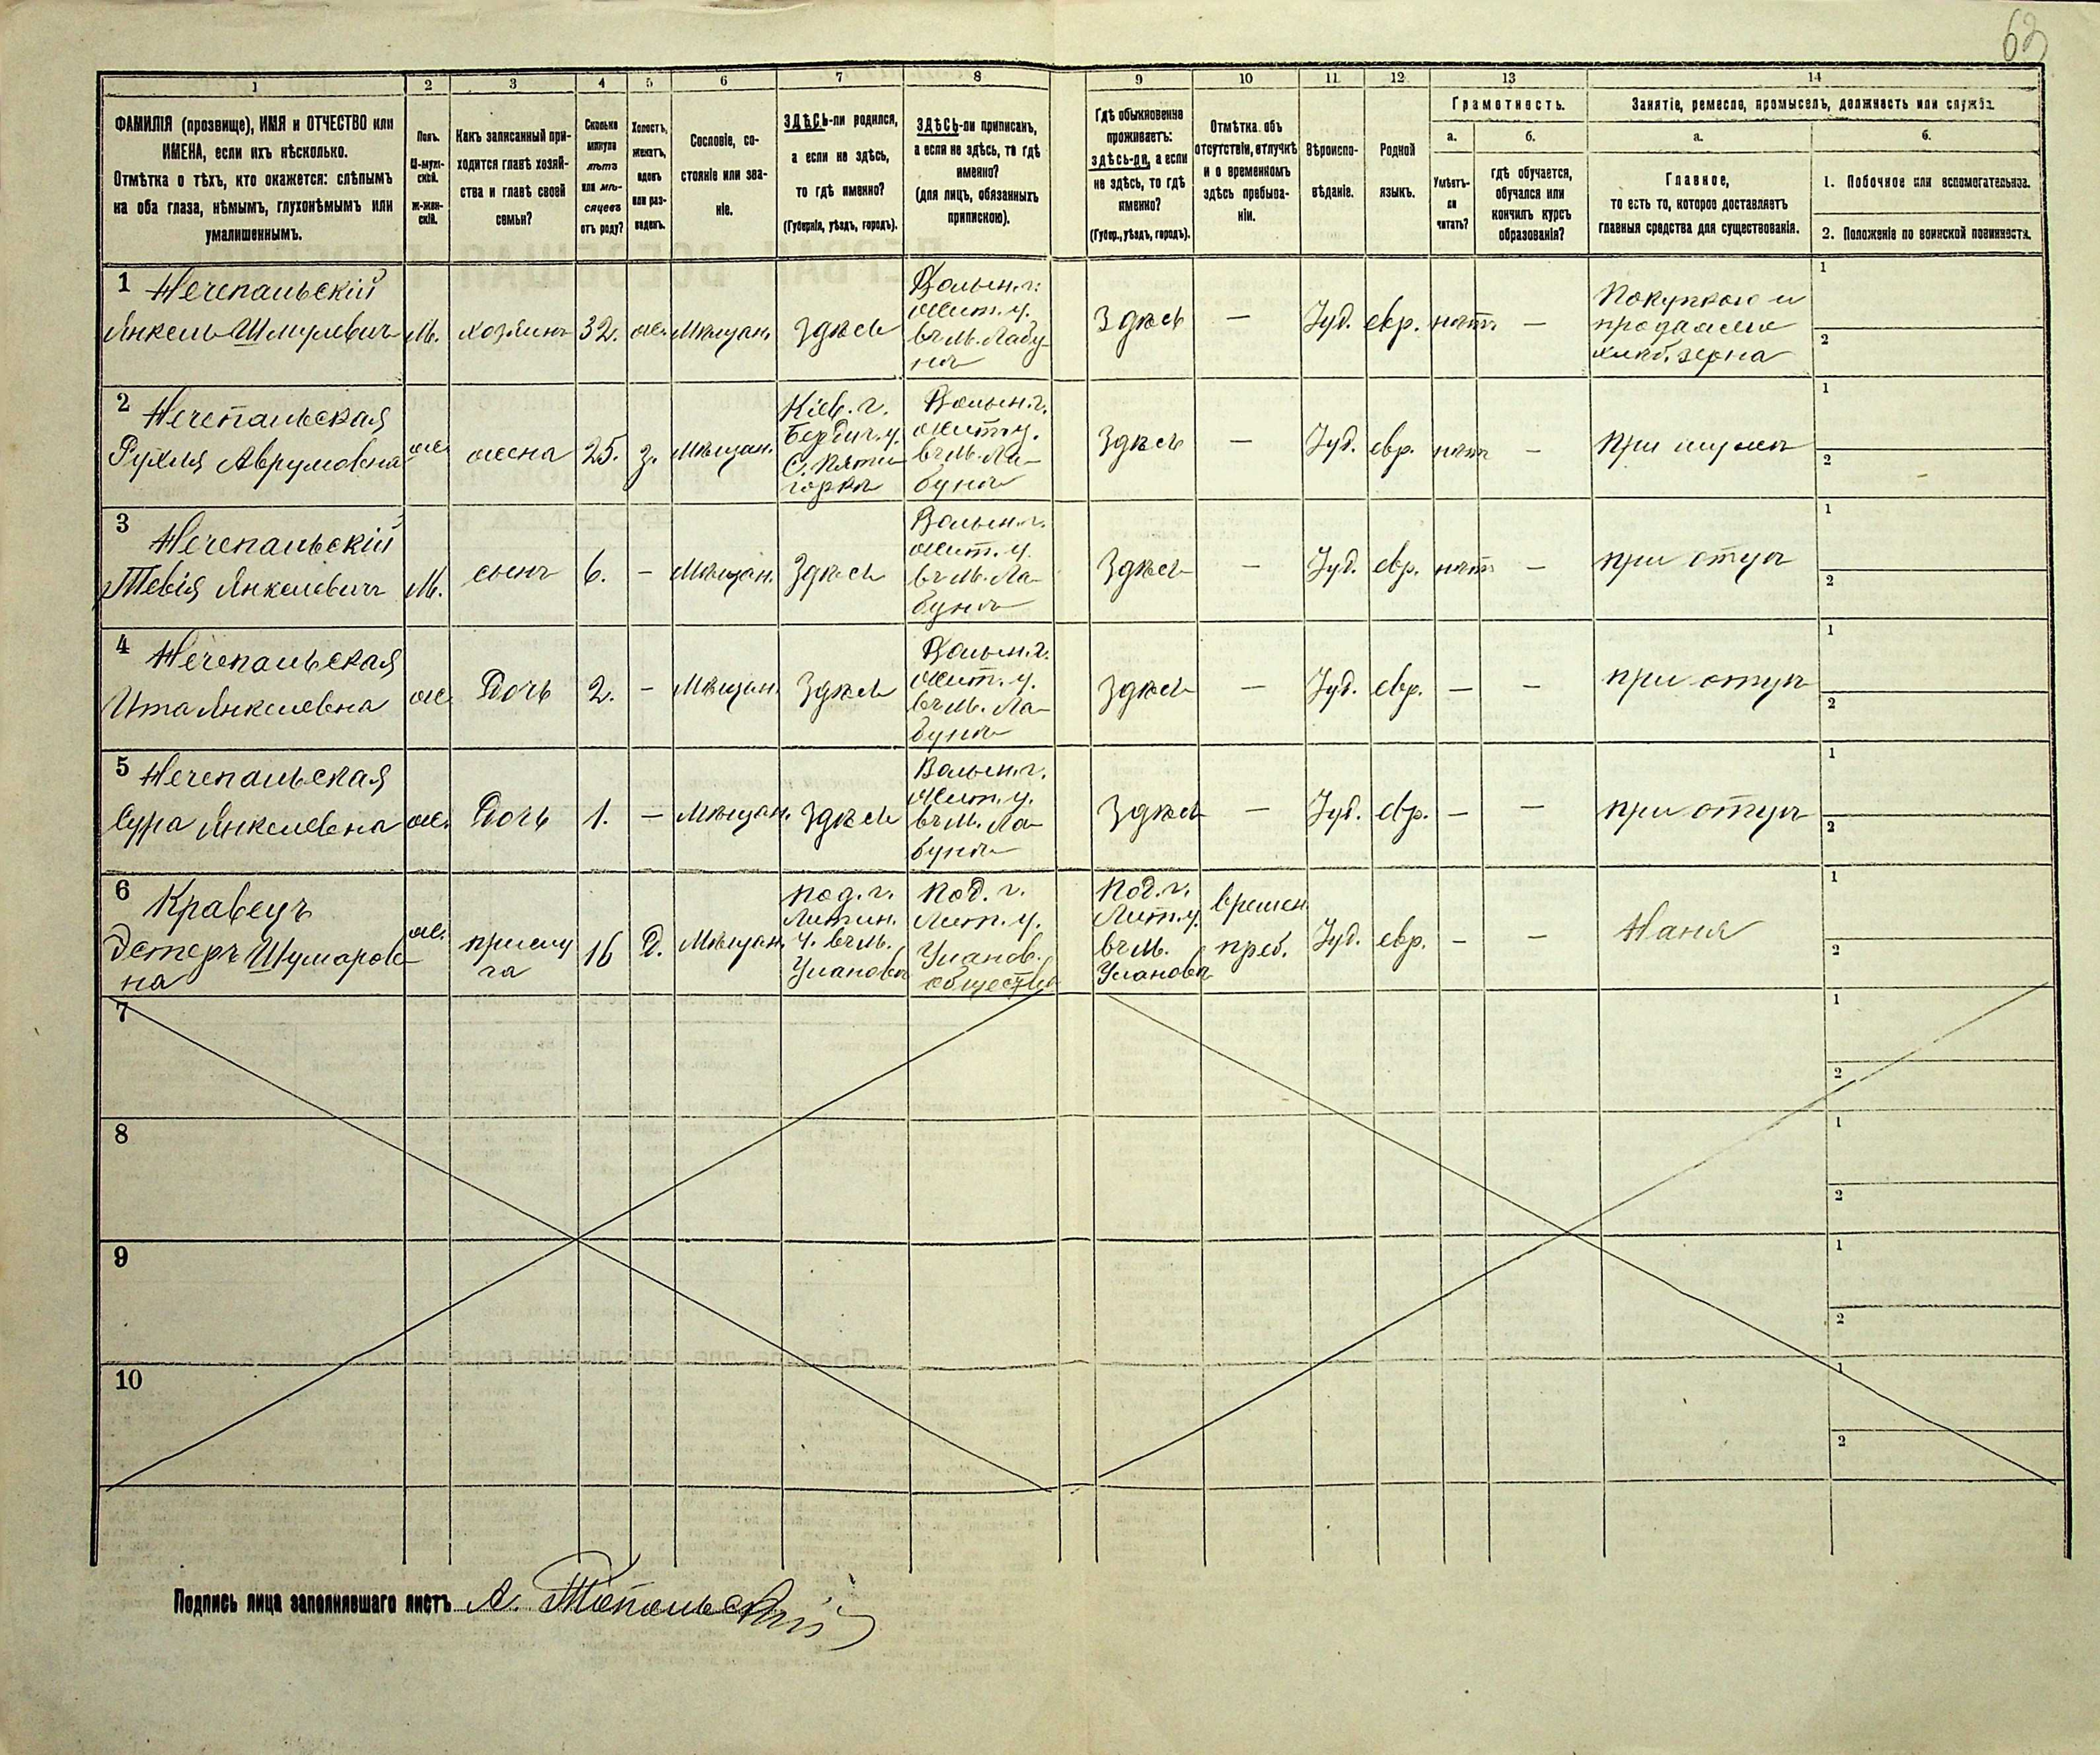 62
1 2 3 4 5 6 7 8 9 10 11 12 13 14
ФАМИЛІЯ (прозвище), ИМЯ и ОТЧЕСТВО или
ИМЕНА, если ихъ нѣсколько.
Отмѣтка о тѣхъ, кто окажется: слѣпымъ
на оба глаза, нѣмымъ, глухонѣмымъ или
умалишеннымъ.
Полъ.
М-муж-
ской.
ж-жен-
скій.
Какъ записанный при-
ходится главѣ хозяй-
ства и главѣ своей
семьи?
Сколько
минуло
лѣтъ
или мѣ-
сяцевъ
отъ роду?
Холостъ,
женатъ,
вдовъ
или раз-
веденъ.
Сословіе, со-
стояніе или зва-
ніе.
ЗДѢСЬ-ли родился,
а если не здѣсь,
то гдѣ именно?
(Губернія, уѣздъ, городъ).
ЗДѢСЬ-ли приписанъ,
а если не здѣсь, то гдѣ
именно?
(для лицъ, обязанныхъ
припискою).
Гдѣ обыкновенно
проживаетъ:
здѣсь-ли, а если
не здѣсь, то гдѣ
именно?
(Губер., уѣздъ, городъ).
Отмѣтка объ
отсутствіи, отлучкѣ
и о временномъ
здѣсь пребыва-
ніи.
Вѣроиспо-
вѣданіе.
Родной
языкъ.
Грамотность.
а.
б.
Умѣетъ-
ли
читать?
гдѣ обучается,
обучался или
кончилъ курсъ
образованія?
Занятіе, ремесло, промыселъ, должность или служба.
а.
б.
Главное,
то есть то, которое доставляетъ
главныя средства для существованія.
1. Побочное или вспомогательное.
2. Положеніе по воинской повинности.
1 Нечепальскій
Янкель Шмулевичъ
М.
хозяинъ
32.
ж.
Мѣщан.
Здѣсь
Волын. г.
Жит. у.
въ М. Лабу-
нь
Здѣсь
—
Іуд.
евр.
нѣтъ
—
Покупкою и
продажею
хлѣб. зерна
1
2
2 Нечепальская
Рухля Аврумовна
ж.
жена
25.
з.
Мѣщан.
Кіев. г.
Бердич. у.
С. Пяти-
горка
Волын. г.
Жит. у.
въ М. Ла-
бунь
Здѣсь
—
Іуд.
евр.
нѣтъ
—
при мужѣ
1
2
3 Нечепальскій
Тевія Янкелевичъ
М.
сынъ
6.
—
Мѣщан.
Здѣсь
Волын. г.
Жит. у.
въ М. Ла-
бунь
Здѣсь
—
Іуд.
евр.
нѣтъ
—
при отцѣ
1
2
4 Нечепальская
Ита Янкелевна
ж.
Дочь
2.
—
Мѣщан.
Здѣсь
Волын. г.
Жит. у.
въ М. Ла-
бунь
Здѣсь
—
Іуд.
евр.
—
—
при отцѣ
1
2
5 Нечепальская
Сура Янкелевна
ж.
Дочь
1.
—
Мѣщан.
Здѣсь
Волын. г.
Жит. у.
въ М. Ла-
бунь
Здѣсь
—
Іуд.
евр.
—
—
при отцѣ
1
2
6 Кравецъ
Эстеръ
на
ж.
прислу
га
16
Д.
Мѣщан.
Под. г.
Литин.
у. въ М.
Улановъ
Под. г.
Лит. у.
Уланов.
общества
Под. г.
Лит. у.
въ М.
Улановъ
времен.
преб.
Іуд.
евр.
—
—
Няня
1
2
7
1
2
8
1
2
9
1
2
10
1
2
Подпись лица заполнявшаго листъ А. Топольскій